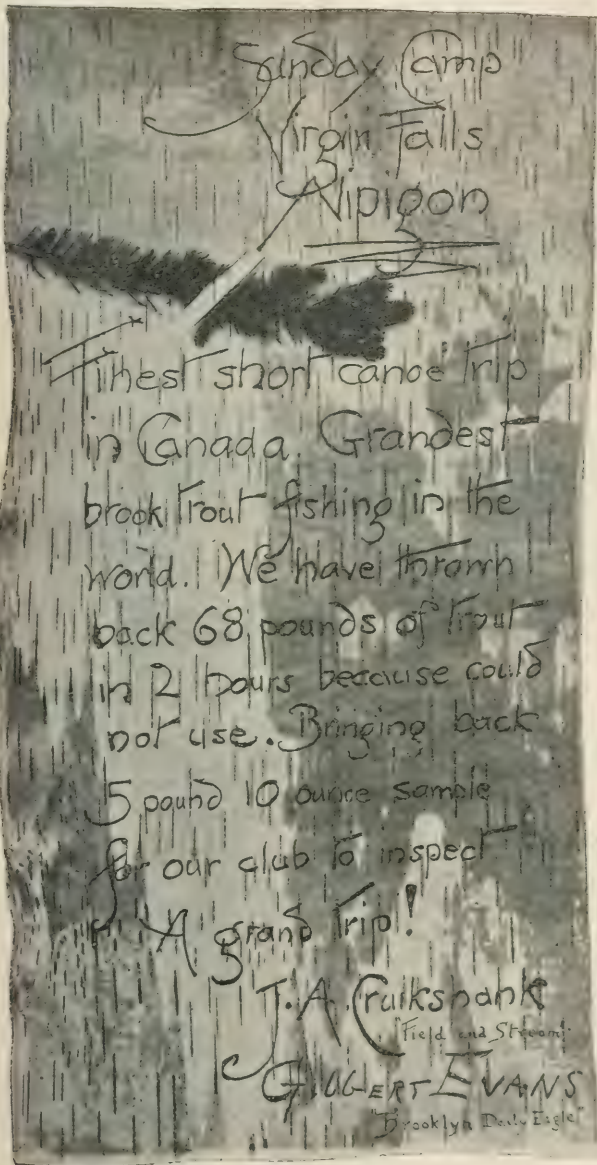 Sunday Camp
Virgin Falls
Nipigon
Finest short canoe trip
in Canada. Grandest
brook trout fishing in the
world. We have thrown
back 68 pounds of trout
in 2 hours because could
not use. Bringing back
5 pound 10 ounce sample
for our club to inspect
A grand trip!
J. A. Cruikshank
"Field and Stream"
Gilbert Evans
"Brooklyn Daily Eagle"